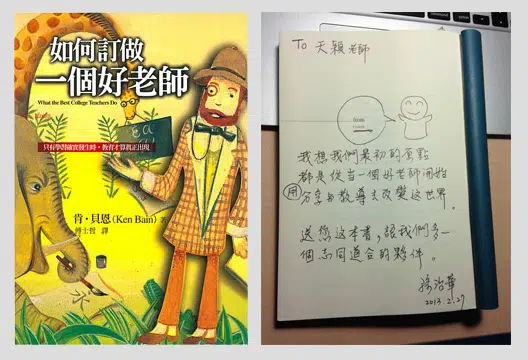 如何訂做
一個好老師
What the Best College Teachers Do
只有學習確實發生時，教育才算真正出現
肯・貝恩(Ken Bain) 著
傅士哲 譯
To 天穎老師
我想我們最初的原點
都是從當一個好老師開始
用分享與教導去改變這世界。
送您這本書，讓我們多一
個志同道合的夥伴。
2013.2.27